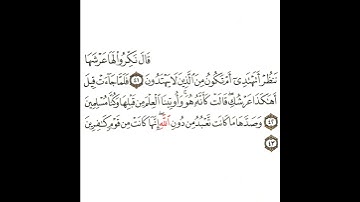 قَالَ نَكِّرُوا۟ لَهَا عَرْشَهَا
نَنظُرْ أَتَهْتَدِىٓ أَمْ تَكُونُ مِنَ ٱلَّذِينَ لَا يَهْتَدُونَ ٤١ فَلَمَّا جَآءَتْ قِيلَ
أَهَٰكَذَا عَرْشُكِ قَالَتْ كَأَنَّهُۥ هُوَ وَأُوتِينَا ٱلْعِلْمَ مِن قَبْلِهَا وَكُنَّا مُسْلِمِينَ
٤٢ وَصَدَّهَا مَا كَانَت تَّعْبُدُ مِن دُونِ ٱللَّهِ إِنَّهَا كَانَتْ مِن قَوْمٍ كَٰفِرِينَ
٤٣